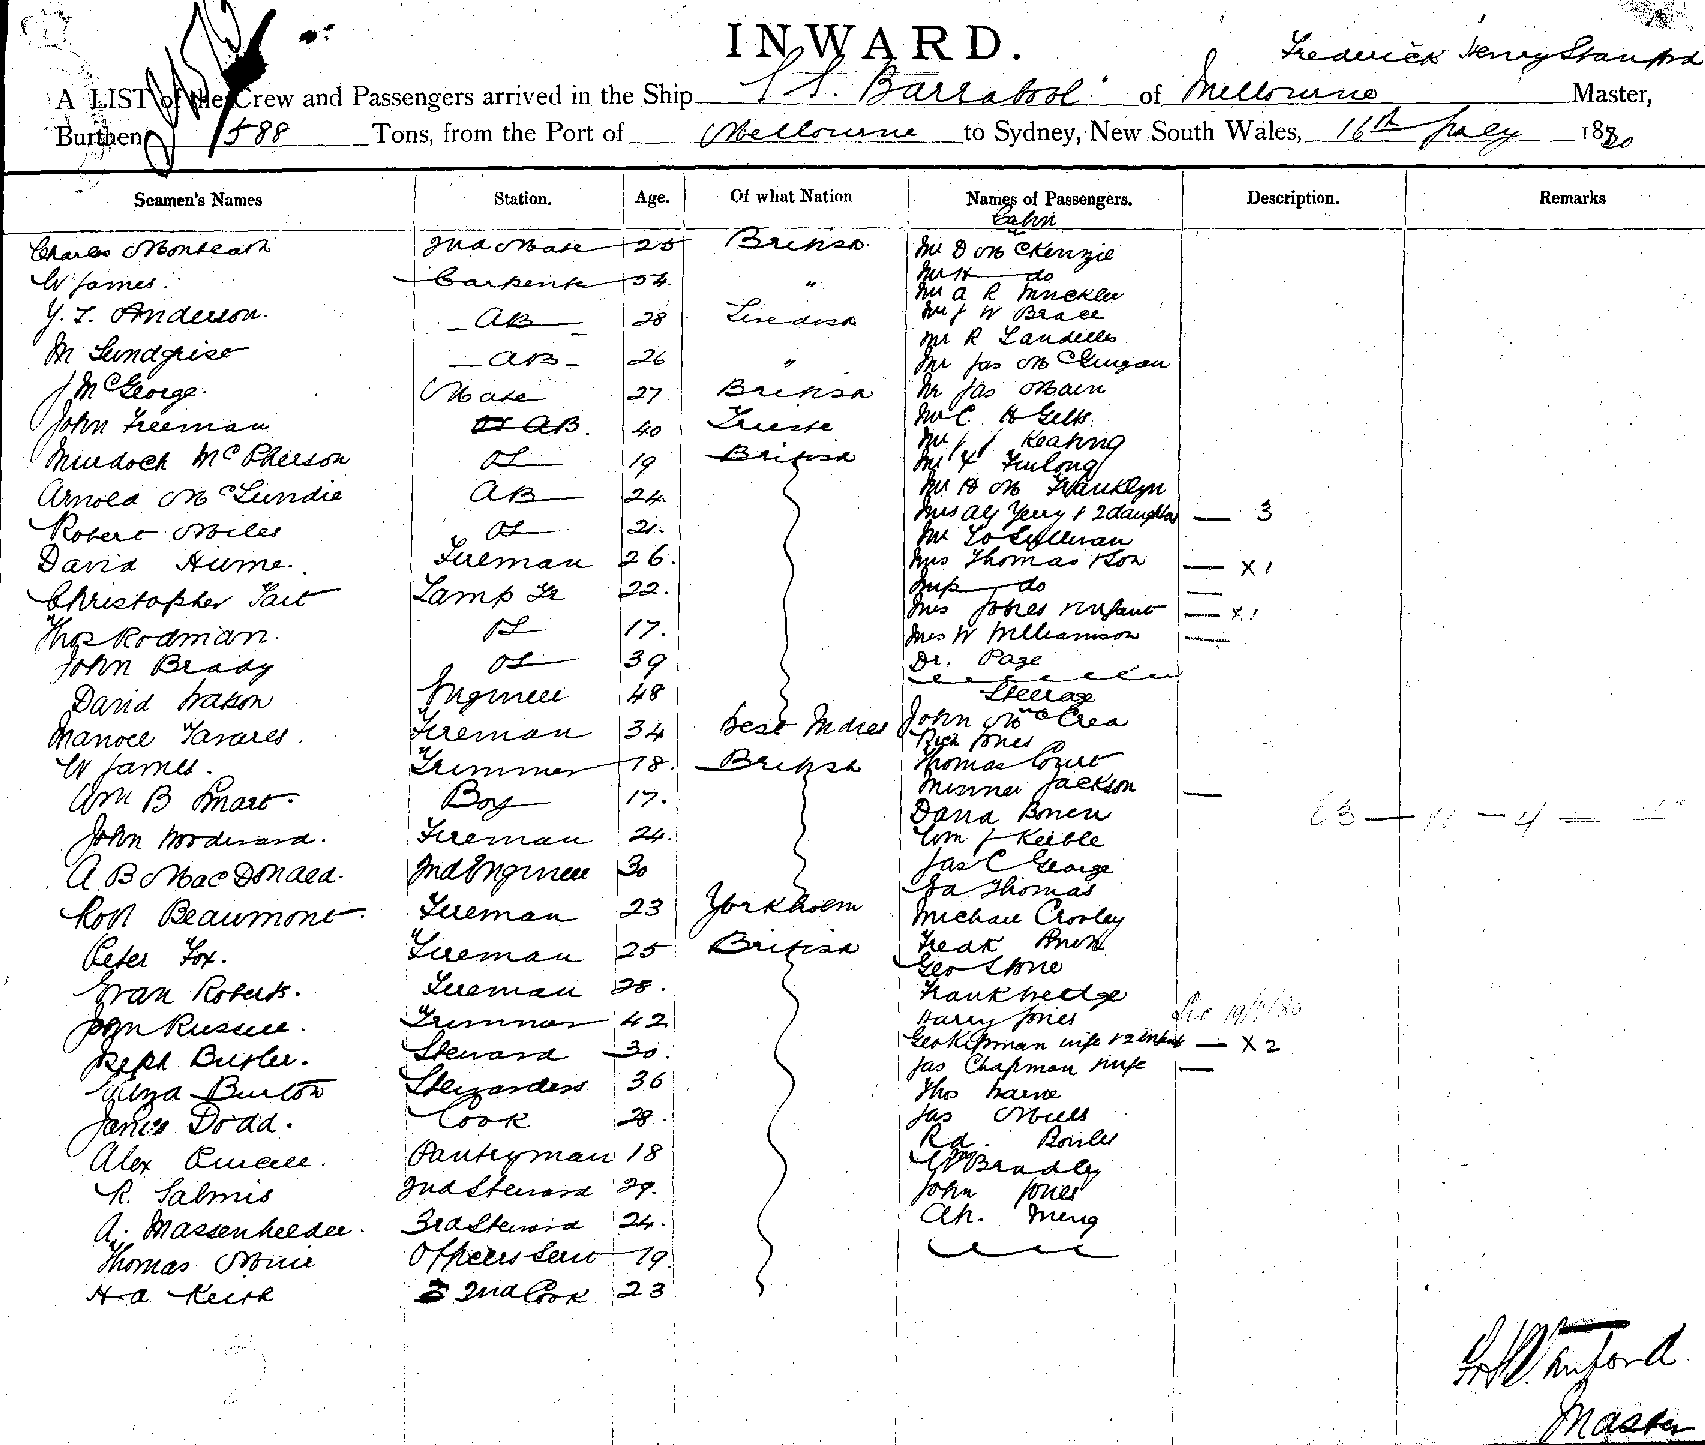 INWARD.
Frederick Henry Stanford
A LIST of the Crew and Passengers arrived in the Ship S. S. Barrabool of Melbourne Master,
Burthen 588 Tons, from the Port of Melbourne to Sydney, New South Wales, 16th July 1880
Seamen's Names Station. Age. Of what Nation Names of Passengers. Description. Remarks
Cabin
Charles Monteath 2nd Mate 25 British
W James. Carpenter 54 "
Y. T. Anderson. AB 28 Swedish
M Lundgrise AB 26 "
J McGeorge. Mate 27 British
John Freeman AB. 40 Trieste
Murdoch McPherson OS 19 British
Arnold McLundie AB 24
Robert Miles OS 21.
David Hume. Fireman 26.
Christopher Tait Lamp Tr 22.
Thos Rodman. OS 17.
John Brady OS 39
David Watson Engineer 48
Manoel Tavares. Fireman 34 West Indies
W James. Trimmer 18. British
Wm B Smart. Boy 17.
John Woodward. Fireman 24.
A B MacDonald. 2nd Engineer 30
Robt Beaumont Fireman 23 Yorkholm
Peter Fox. Fireman 25 British
Evan Roberts. Fireman 28.
John Russell. Trimmer 42
Joseph Butler. Steward 30.
Eliza Burton Stewardess 36
James Dodd. Cook 28.
Alex Purcell. Pantryman 18
R. Salmis 2nd Steward 29.
A. Massenheeder. 3rd Steward 24.
Thomas Muir Officers Serv 19.
H A Keith 2nd Cook 23
Mr D McKenzie
Mr H do
Mr A R Muckler
Mr J W Brace
Mr R Landells
Mr Jas McGuigan
Mr Jas Main
Mr C H Gells
Mr J J Keating
Mr Furlong
Mr H M Franklyn
Mrs Alf Yerry & 2 daughters — 3
Mr Sullivan
Mrs Thomas & Son — X 1
Miss do —
Mrs Jones & infant — X 1
Mrs W Williamson —
Dr. Page
Steerage
John McCrea
Rich Jones
Thomas Court
Minnie Jackson —
David Bowen
Wm J Keeble
63 — 11 — 4 —
Jas C George
Thomas
Michael Crosley
Geo Stone
Frank Wedge
Harry Jones
Geo Kipman wife & 2 infants — X 2
Jas Chapman wife —
Thos
Jas Mills
Rd. Bowles
Wm Bradley
John Jones
Ah. Meng
F H Stanford
Master